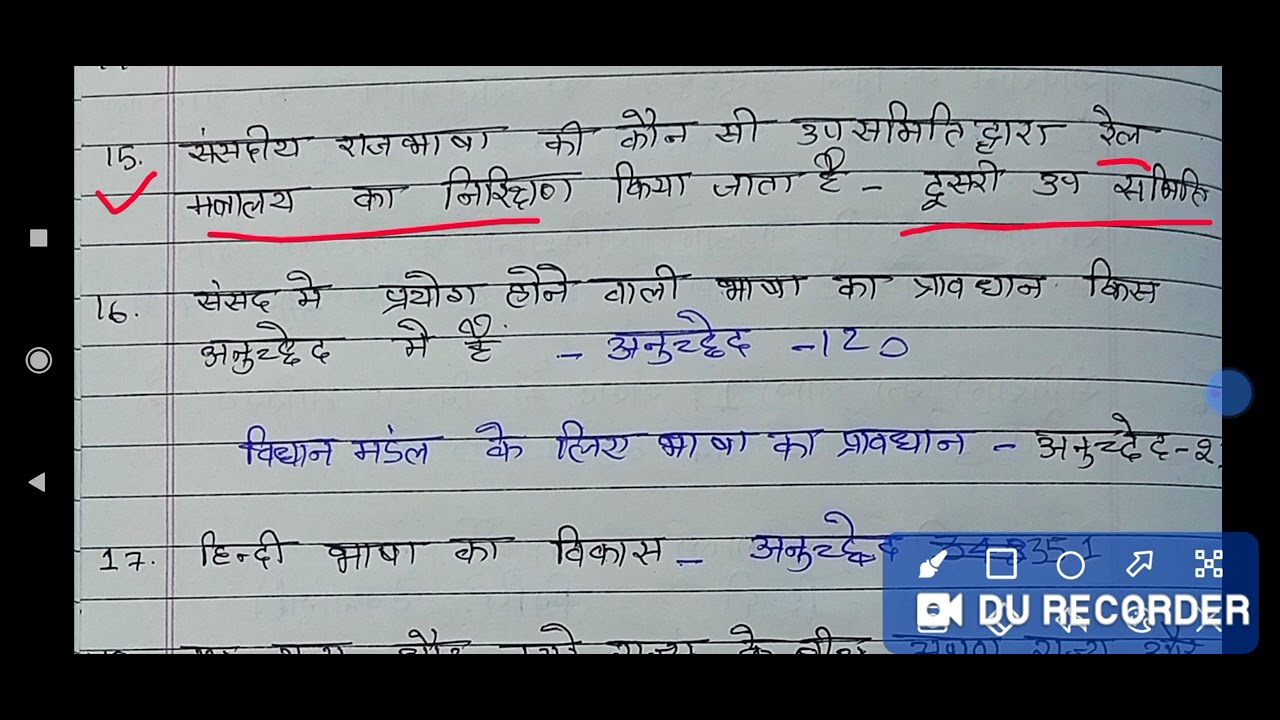 15. संसदीय राजभाषा की कौन सी उपसमिति द्वारा रेल
मत्रालय का निरिक्षण किया जाता है - दूसरी उप समिति
16. संसद मे प्रयोग होने वाली भाषा का प्रावधान किस
अनुच्छेद मे है - अनुच्छेद -120
विधान मडंल के लिए भाषा का प्रावधान - अनुच्छेद-2
17. हिन्दी भाषा का विकास - अनुच्छेद 351
DU RECORDER